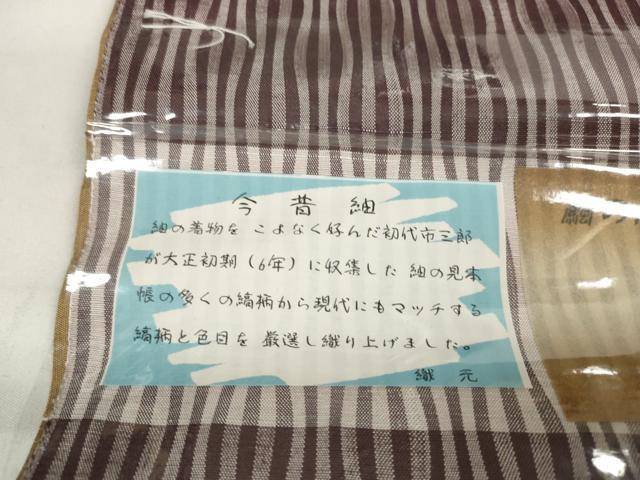 今昔紬
紬の着物を こよなく好んだ初代市三郎
が大正初期（6年）に収集した 紬の見本
帳の多くの縞柄から現代にもマッチする
縞柄と色目を 厳選し織り上げました。
織元